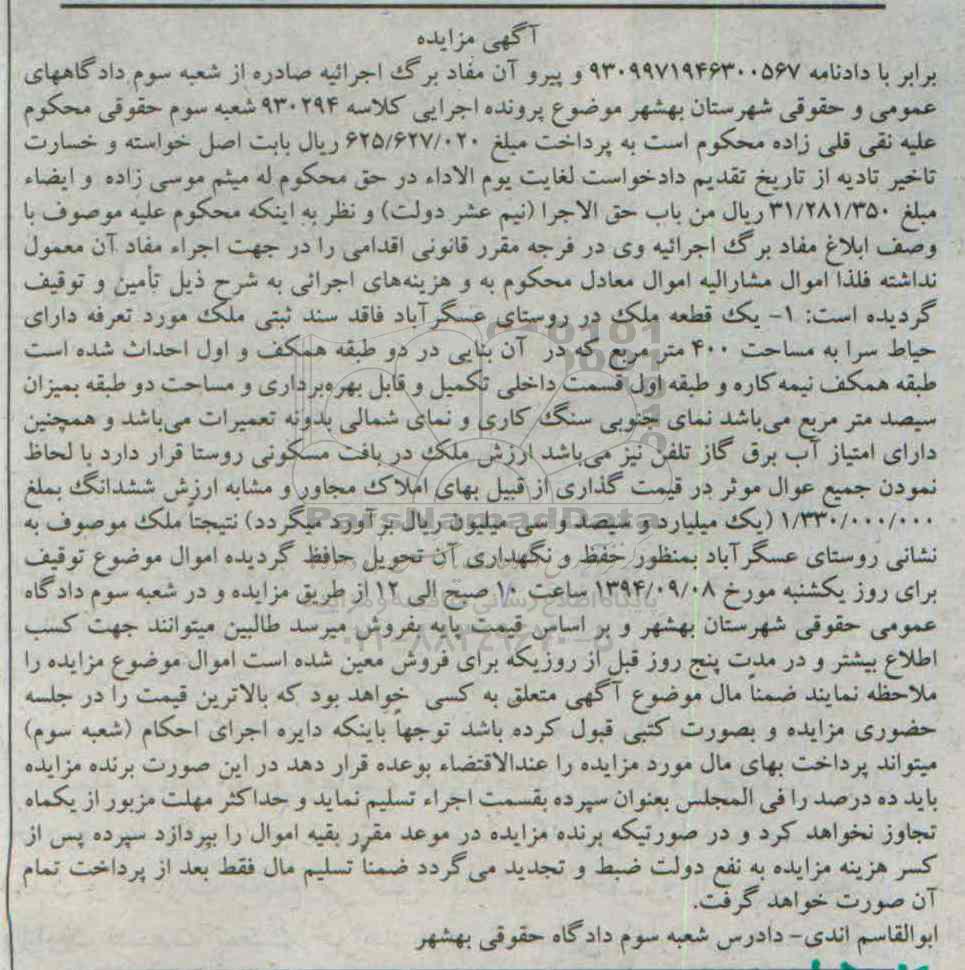 آگهی مزایده
برابر با دادنامه ۹۳۰۹۹۷۱۹۴۶۳۰۰۵۶۷ و پیرو آن مفاد برگ اجرائیه صادره از شعبه سوم دادگاههای
عمومی و حقوقی شهرستان بهشهر موضوع پرونده اجرایی کلاسه ۹۳۰۲۹۴ شعبه سوم حقوقی محکوم
علیه نقی قلی زاده محکوم است به پرداخت مبلغ ۶۲۵/۶۲۷/۰۲۰ ریال بابت اصل خواسته و خسارت
تاخیر تادیه از تاریخ تقدیم دادخواست لغایت یوم الاداء در حق محکوم له میثم موسی زاده و ایضاء
مبلغ ۳۱/۲۸۱/۳۵۰ ریال من باب حق الاجرا (نیم عشر دولت) و نظر به اینکه محکوم علیه موصوف با
وصف ابلاغ مفاد برگ اجرائیه وی در فرجه مقرر قانونی اقدامی را در جهت اجراء مفاد آن معمول
نداشته فلذا اموال مشارالیه اموال معادل محکوم به و هزینه‌های اجرائی به شرح ذیل تأمین و توقیف
گردیده است: ۱- یک قطعه ملک در روستای عسگرآباد فاقد سند ثبتی ملک مورد تعرفه دارای
حیاط سرا به مساحت ۴۰۰ متر مربع که در آن بنایی در دو طبقه همکف و اول احداث شده است
طبقه همکف نیمه کاره و طبقه اول قسمت داخلی تکمیل و قابل بهره‌برداری و مساحت دو طبقه بمیزان
سیصد متر مربع می‌باشد نمای جنوبی سنگ کاری و نمای شمالی بدونه تعمیرات می‌باشد و همچنین
دارای امتیاز آب برق گاز تلفن نیز می‌باشد ارزش ملک در بافت مسکونی روستا قرار دارد با لحاظ
نمودن جمیع عوال موثر در قیمت گذاری از قبیل بهای املاک مجاور و مشابه ارزش ششدانگ بملغ
۱/۳۳۰/۰۰۰/۰۰۰ (یک میلیارد و سیصد و سی میلیون ریال برآورد میگردد) نتیجتاً ملک موصوف به
نشانی روستای عسگرآباد بمنظور حفظ و نگهداری آن تحویل حافظ گردیده اموال موضوع توقیف
برای روز یکشنبه مورخ ۱۳۹۴/۰۹/۰۸ ساعت ۱۰ صبح الی ۱۲ از طریق مزایده و در شعبه سوم دادگاه
عمومی حقوقی شهرستان بهشهر و بر اساس قیمت پایه بفروش میرسد طالبین میتوانند جهت کسب
اطلاع بیشتر و در مدت پنج روز قبل از روزیکه برای فروش معین شده است اموال موضوع مزایده را
ملاحظه نمایند ضمناً مال موضوع آگهی متعلق به کسی خواهد بود که بالاترین قیمت را در جلسه
حضوری مزایده و بصورت کتبی قبول کرده باشد توجهاً باینکه دایره اجرای احکام (شعبه سوم)
میتواند پرداخت بهای مال مورد مزایده را عندالاقتضاء بوعده قرار دهد در این صورت برنده مزایده
باید ده درصد را فی المجلس بعنوان سپرده بقسمت اجراء تسلیم نماید و حداکثر مهلت مزبور از یکماه
تجاوز نخواهد کرد و در صورتیکه برنده مزایده در موعد مقرر بقیه اموال را بپردازد سپرده پس از
کسر هزینه مزایده به نفع دولت ضبط و تجدید می‌گردد ضمناً تسلیم مال فقط بعد از پرداخت تمام
آن صورت خواهد گرفت.
ابوالقاسم اندی- دادرس شعبه سوم دادگاه حقوقی بهشهر
ParsNamadData